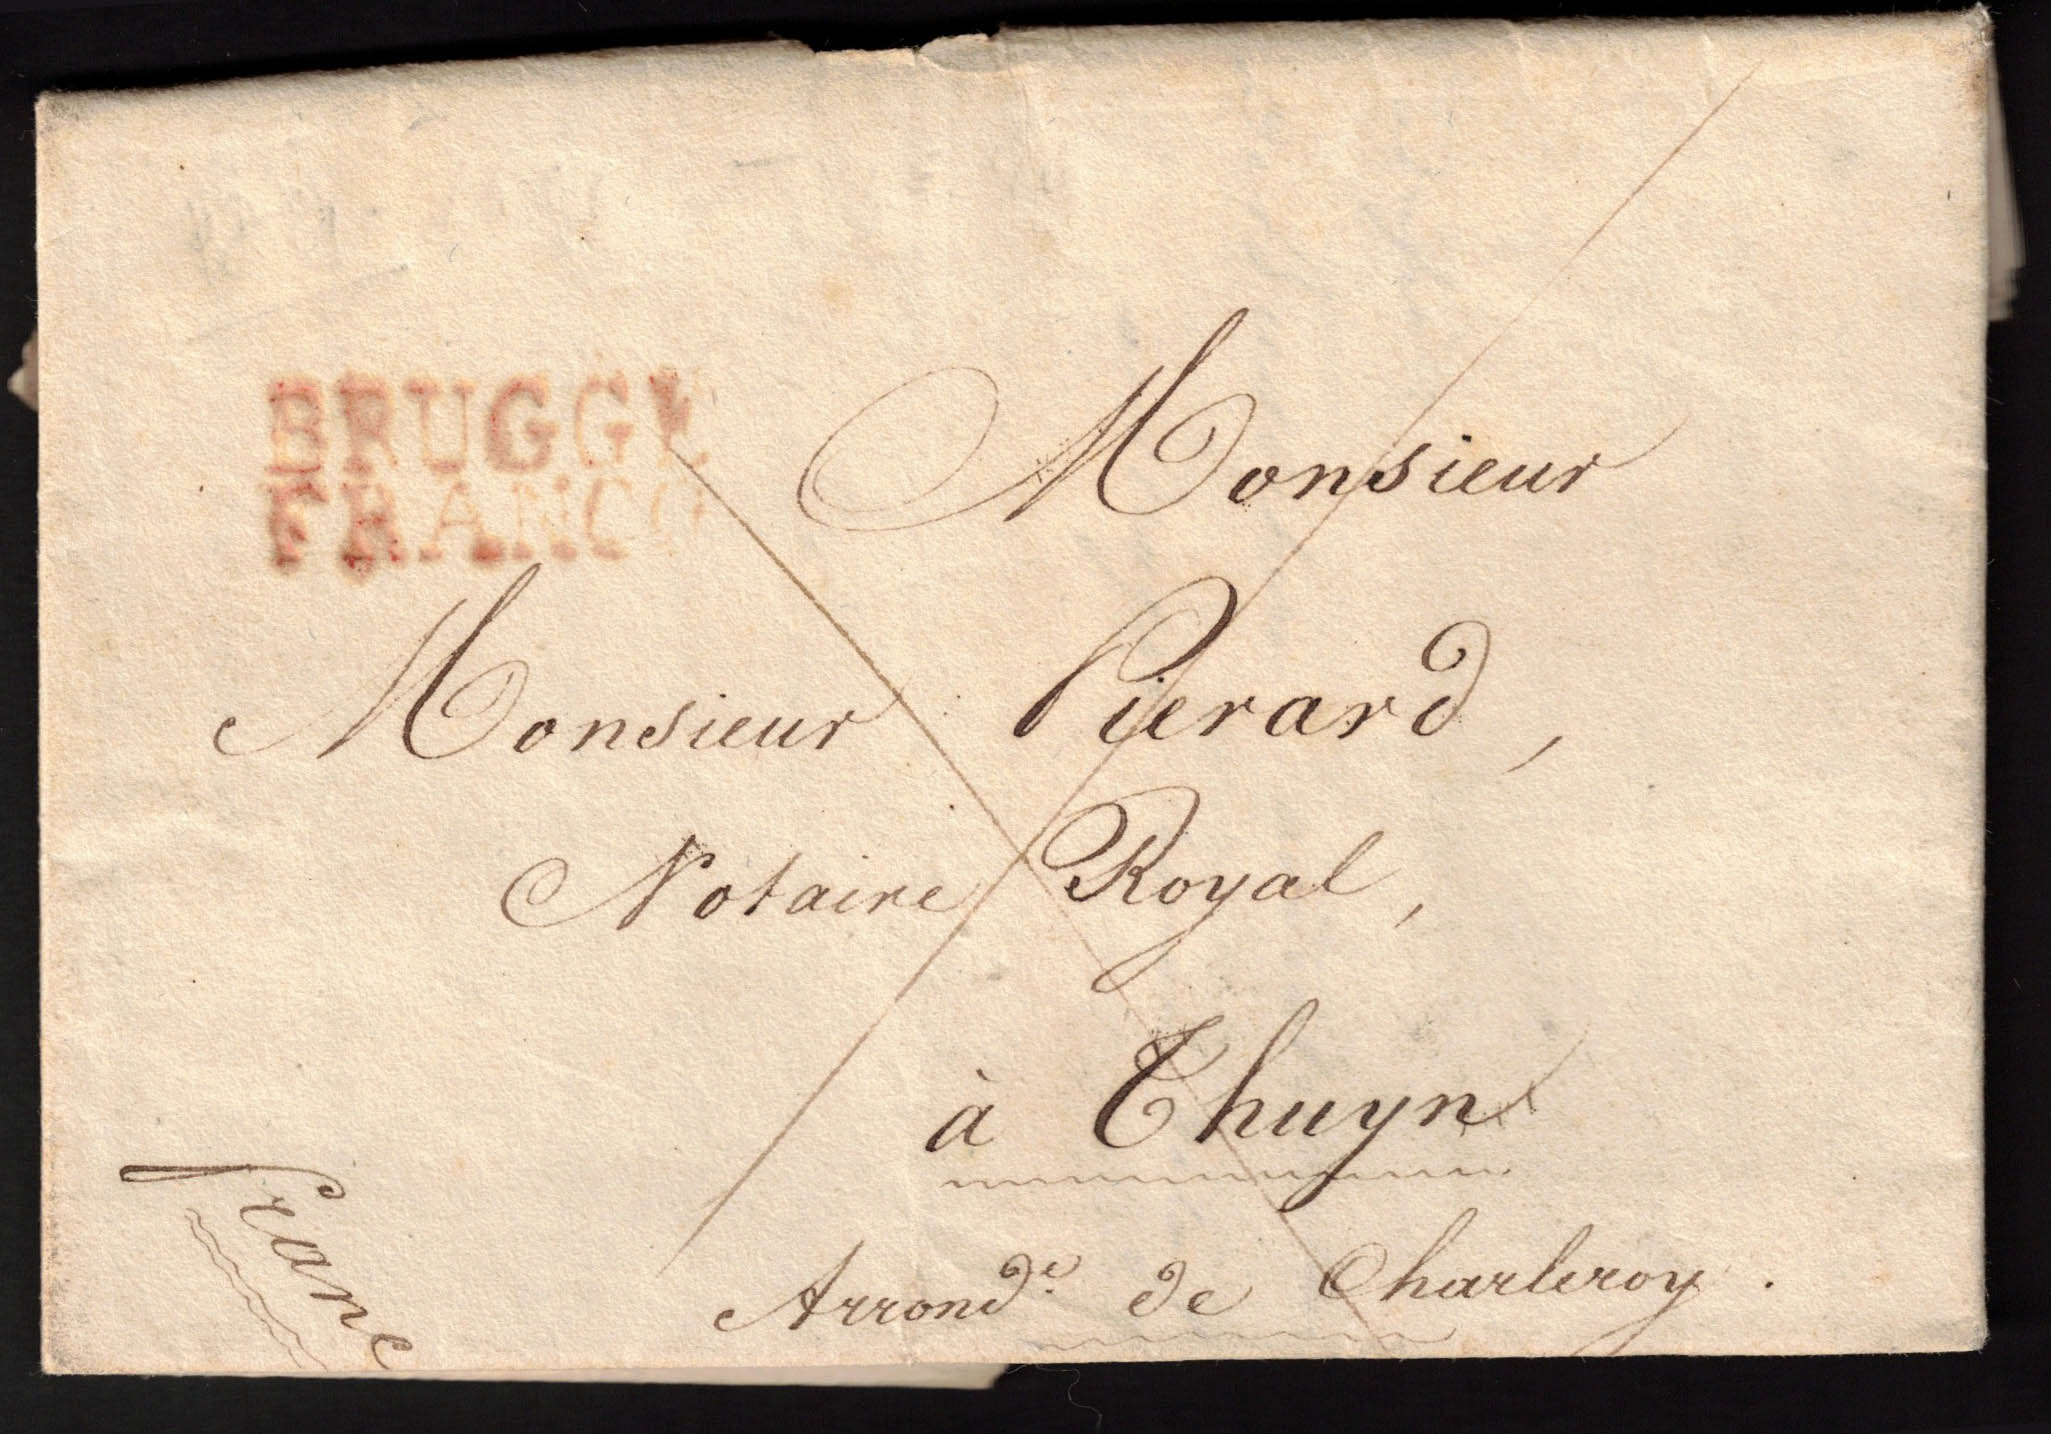 BRUGGE
FRANCO
Monsieur
Monsieur Pierard,
Notaire Royal,
à Thuyn
Arrond.e de Charleroy.
franc